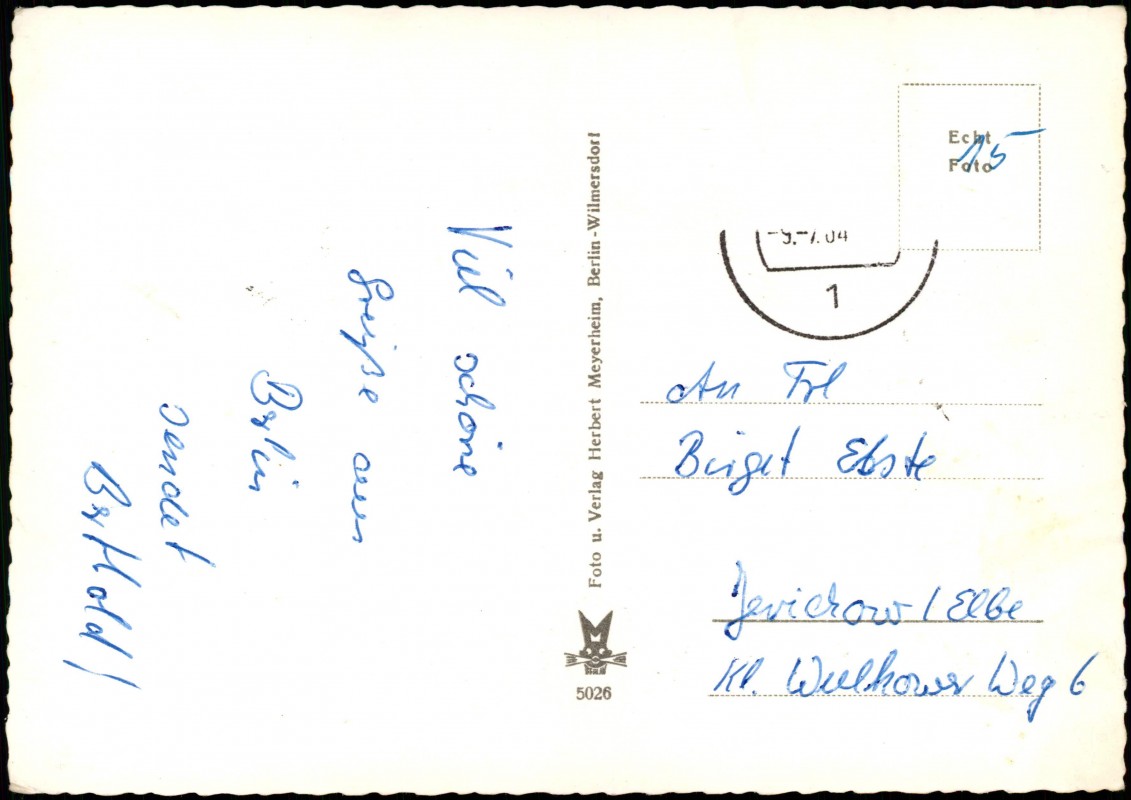 Viel schöne
Grüße aus
Berlin
sendet
Berthold!
Foto u. Verlag Herbert Meyerheim, Berlin-Wilmersdorf
5026
Echt
Foto
15
1
An Frl
Birget Ebste
Jerichow / Elbe
Kl. Wulkower Weg 6